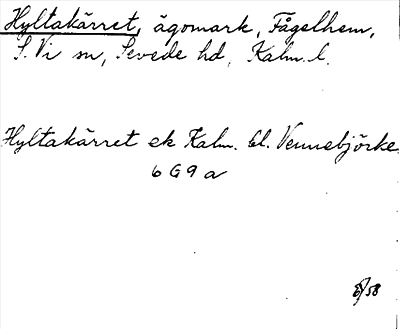 Hyltakärret, ägomark, Fågelhem,
S. Vi sn, Sevede hd, Kalm. l.
Hyltakärret ek Kalm. bl. Vennebjörke
6 G 9 a
8/58